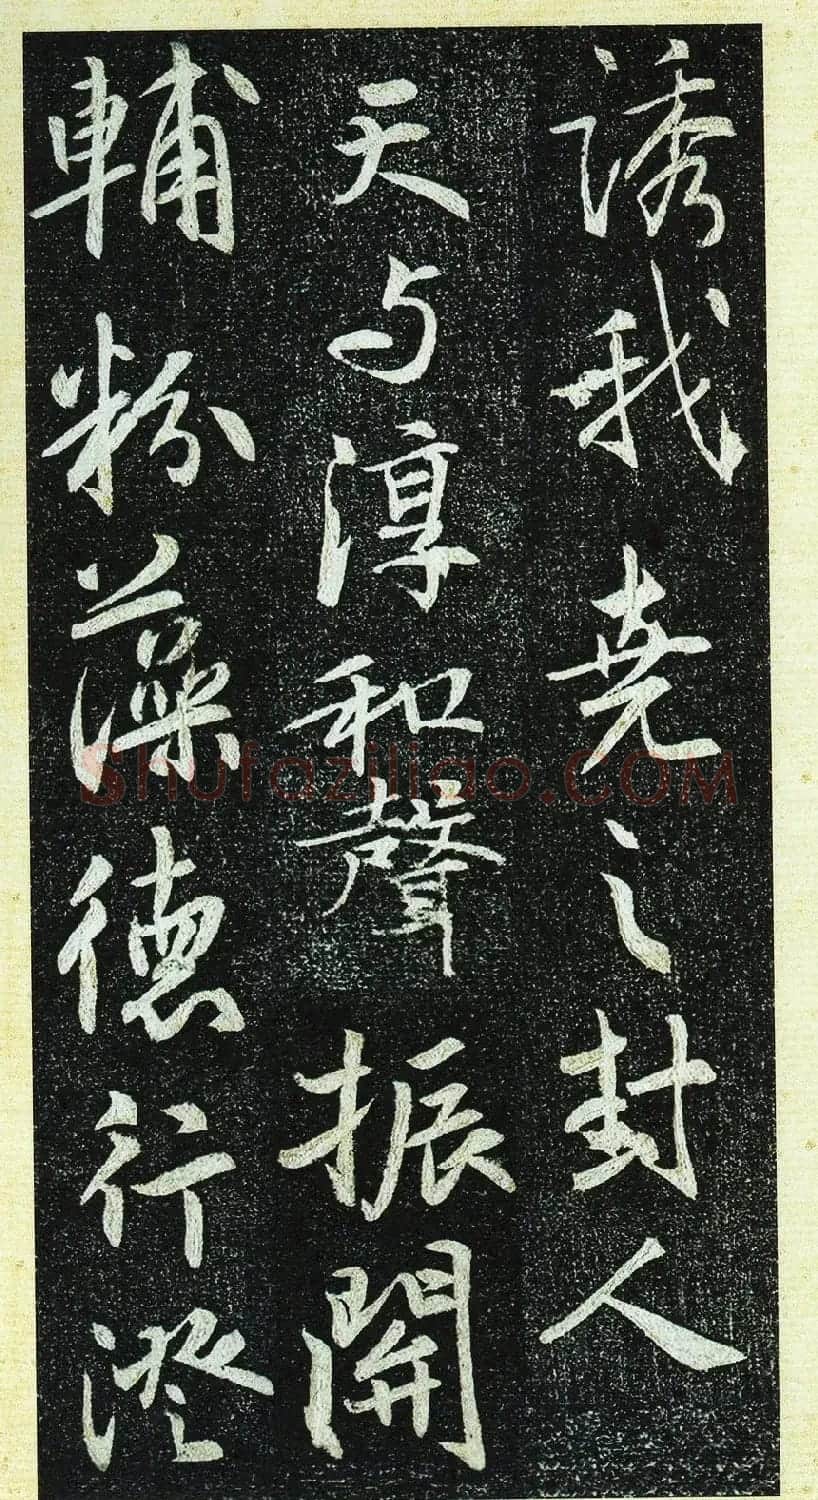 誘我堯之封人
天与淳和聲振開
輔粉藻德行澄
Shufaziliao.COM